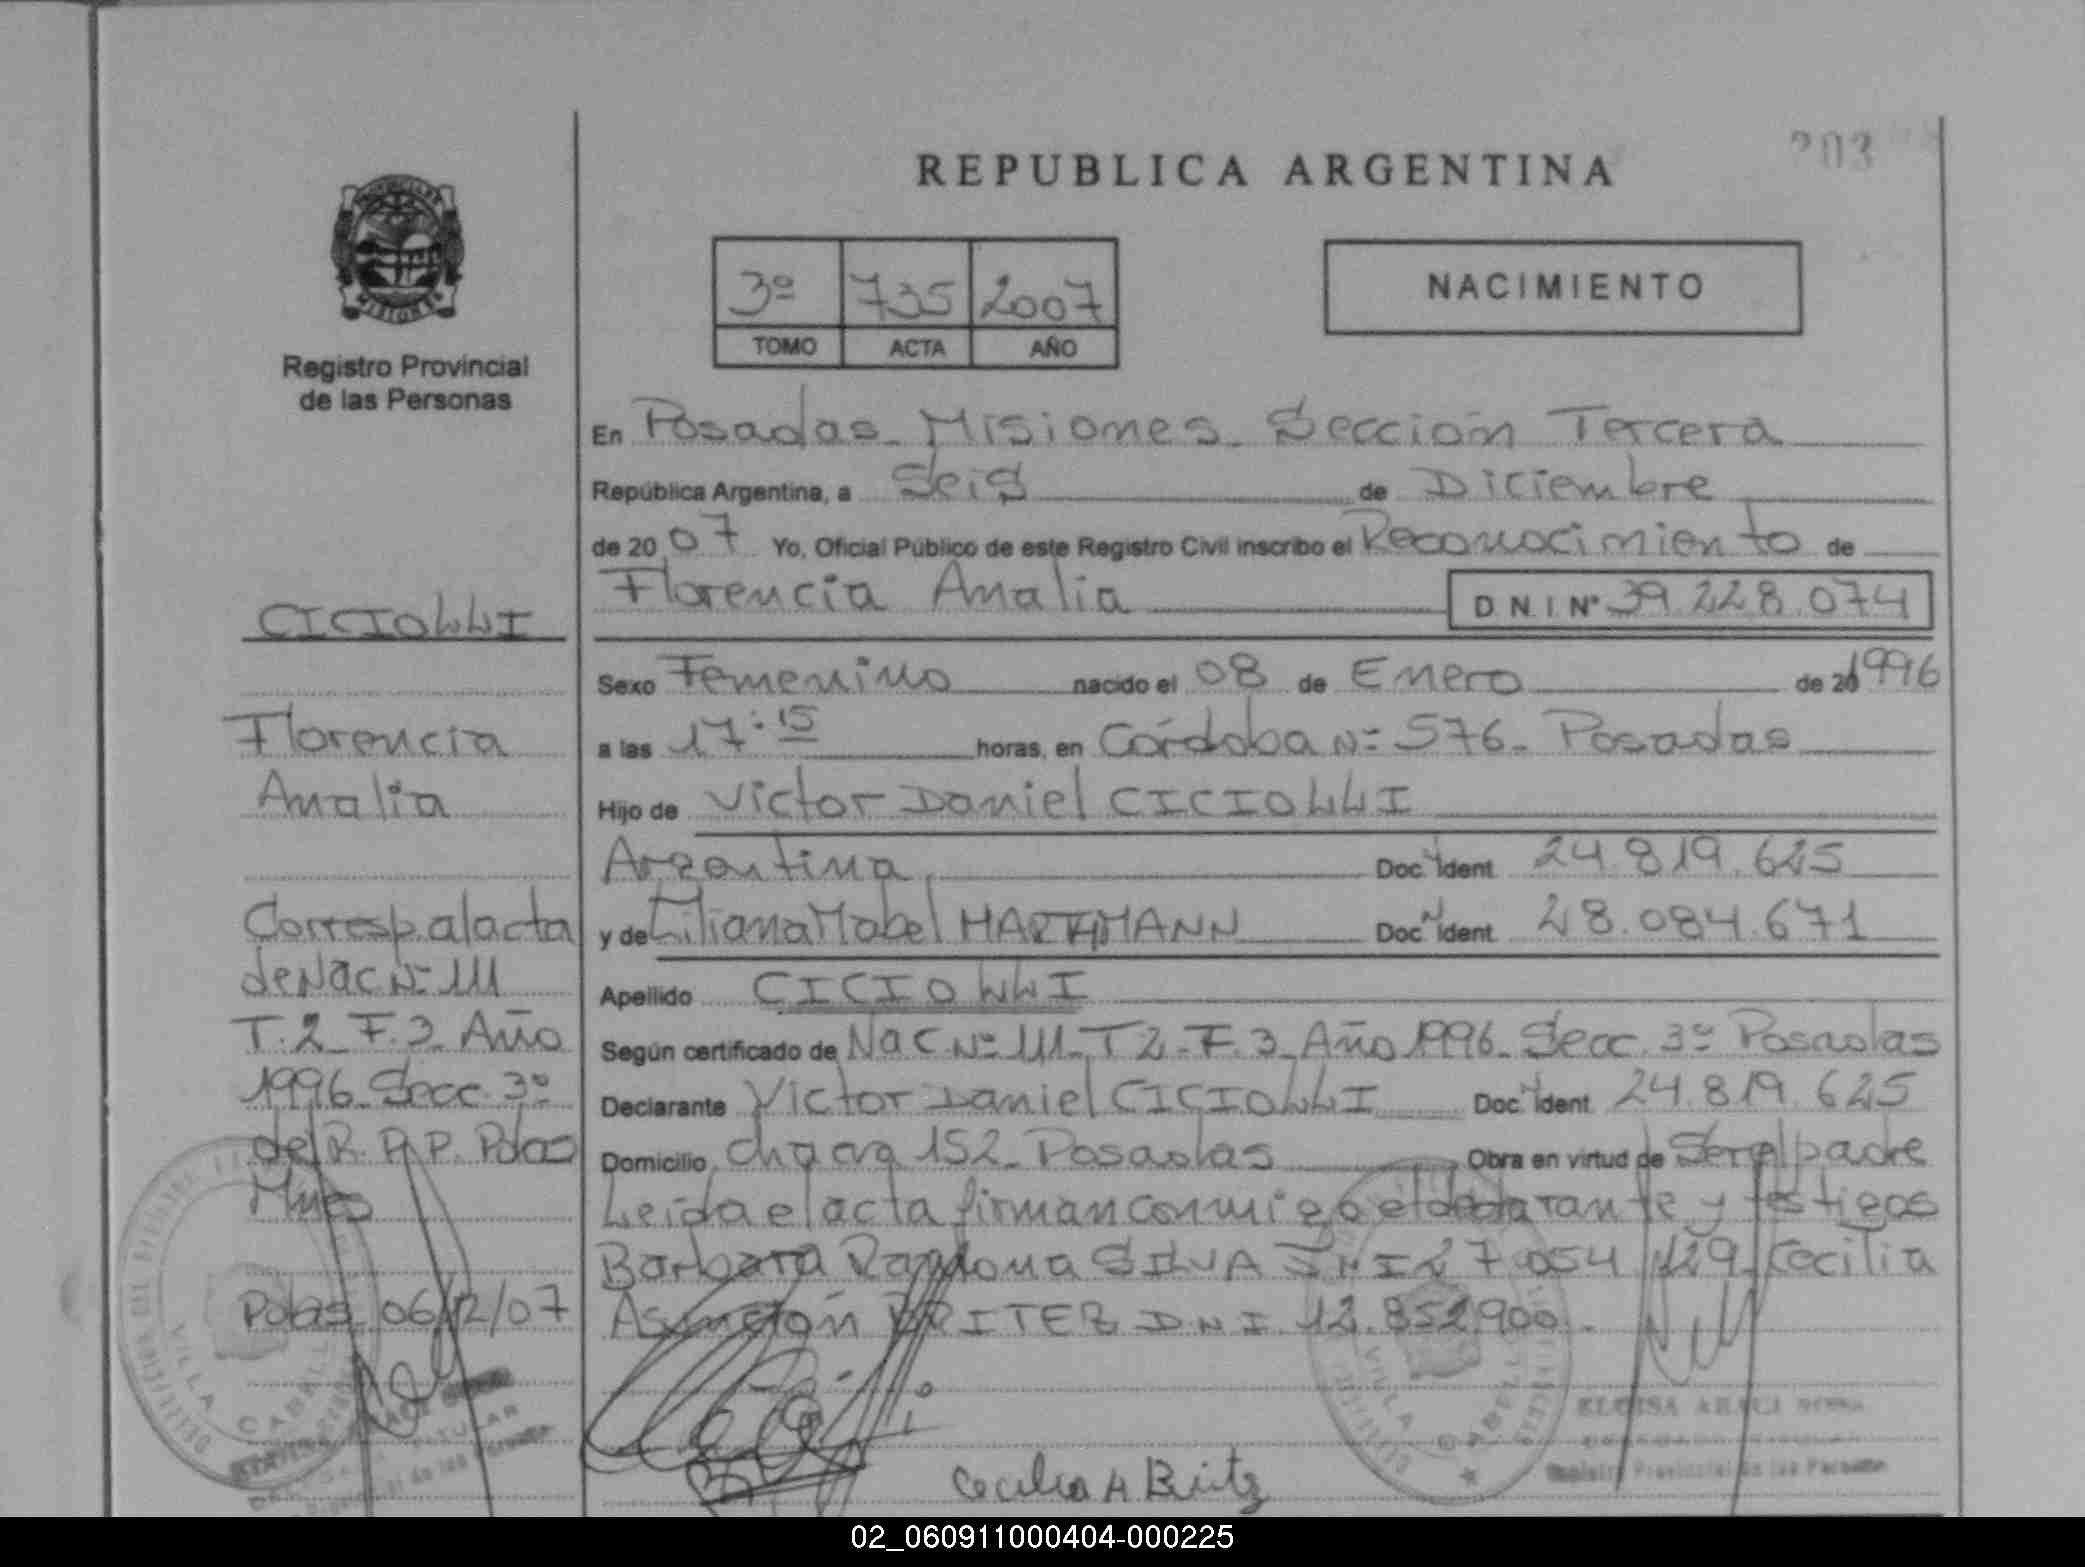 203
REPUBLICA ARGENTINA
MISIONES
Registro Provincial
de las Personas
3º 735 2007
TOMO ACTA AÑO
NACIMIENTO
En Posadas Misiones Sección Tercera
República Argentina, a Seis de Diciembre
de 2007 Yo, Oficial Público de este Registro Civil inscribo el Reconocimiento de
Florencia Analia D.N.I Nº 39.228.074
Sexo Femenino nacido el 08 de Enero de 20 1996
a las 17:15 horas, en Córdoba Nº 576 Posadas
Hijo de Victor Daniel CICIOLLI
Argentina Doc Ident 24.819.625
y de Liliana Mabel HARTMANN Doc Ident 28.084.671
Apellido CICIOLLI
Según certificado de Nac Nº 111 T 2 F. 3 Año 1996 Secc. 3º Posadas
Declarante Victor Daniel CICIOLLI Doc Ident 24.819.625
Domicilio Chacra 152 Posadas Obra en virtud de Ser el padre
Leida el acta firman conmigo el declarante y testigos
Barbara Ramona SILVA DNI 27.054.129 Cecilia
Asunción BRITEZ DNI 12.852.900
Cecilia A Britz
ELOISA ARACI
Registro Provincial de las Personas
CICIOLLI
Florencia
Analia
Corresp al acta
de Nac Nº 111
T. 2 F. 3 Año
1996 Secc. 3º
del R. P. P. Pdas
Mnes
Pdas 06/12/07
VILLA CABELLO
VILLA CABELLO
02_060911000404-000225